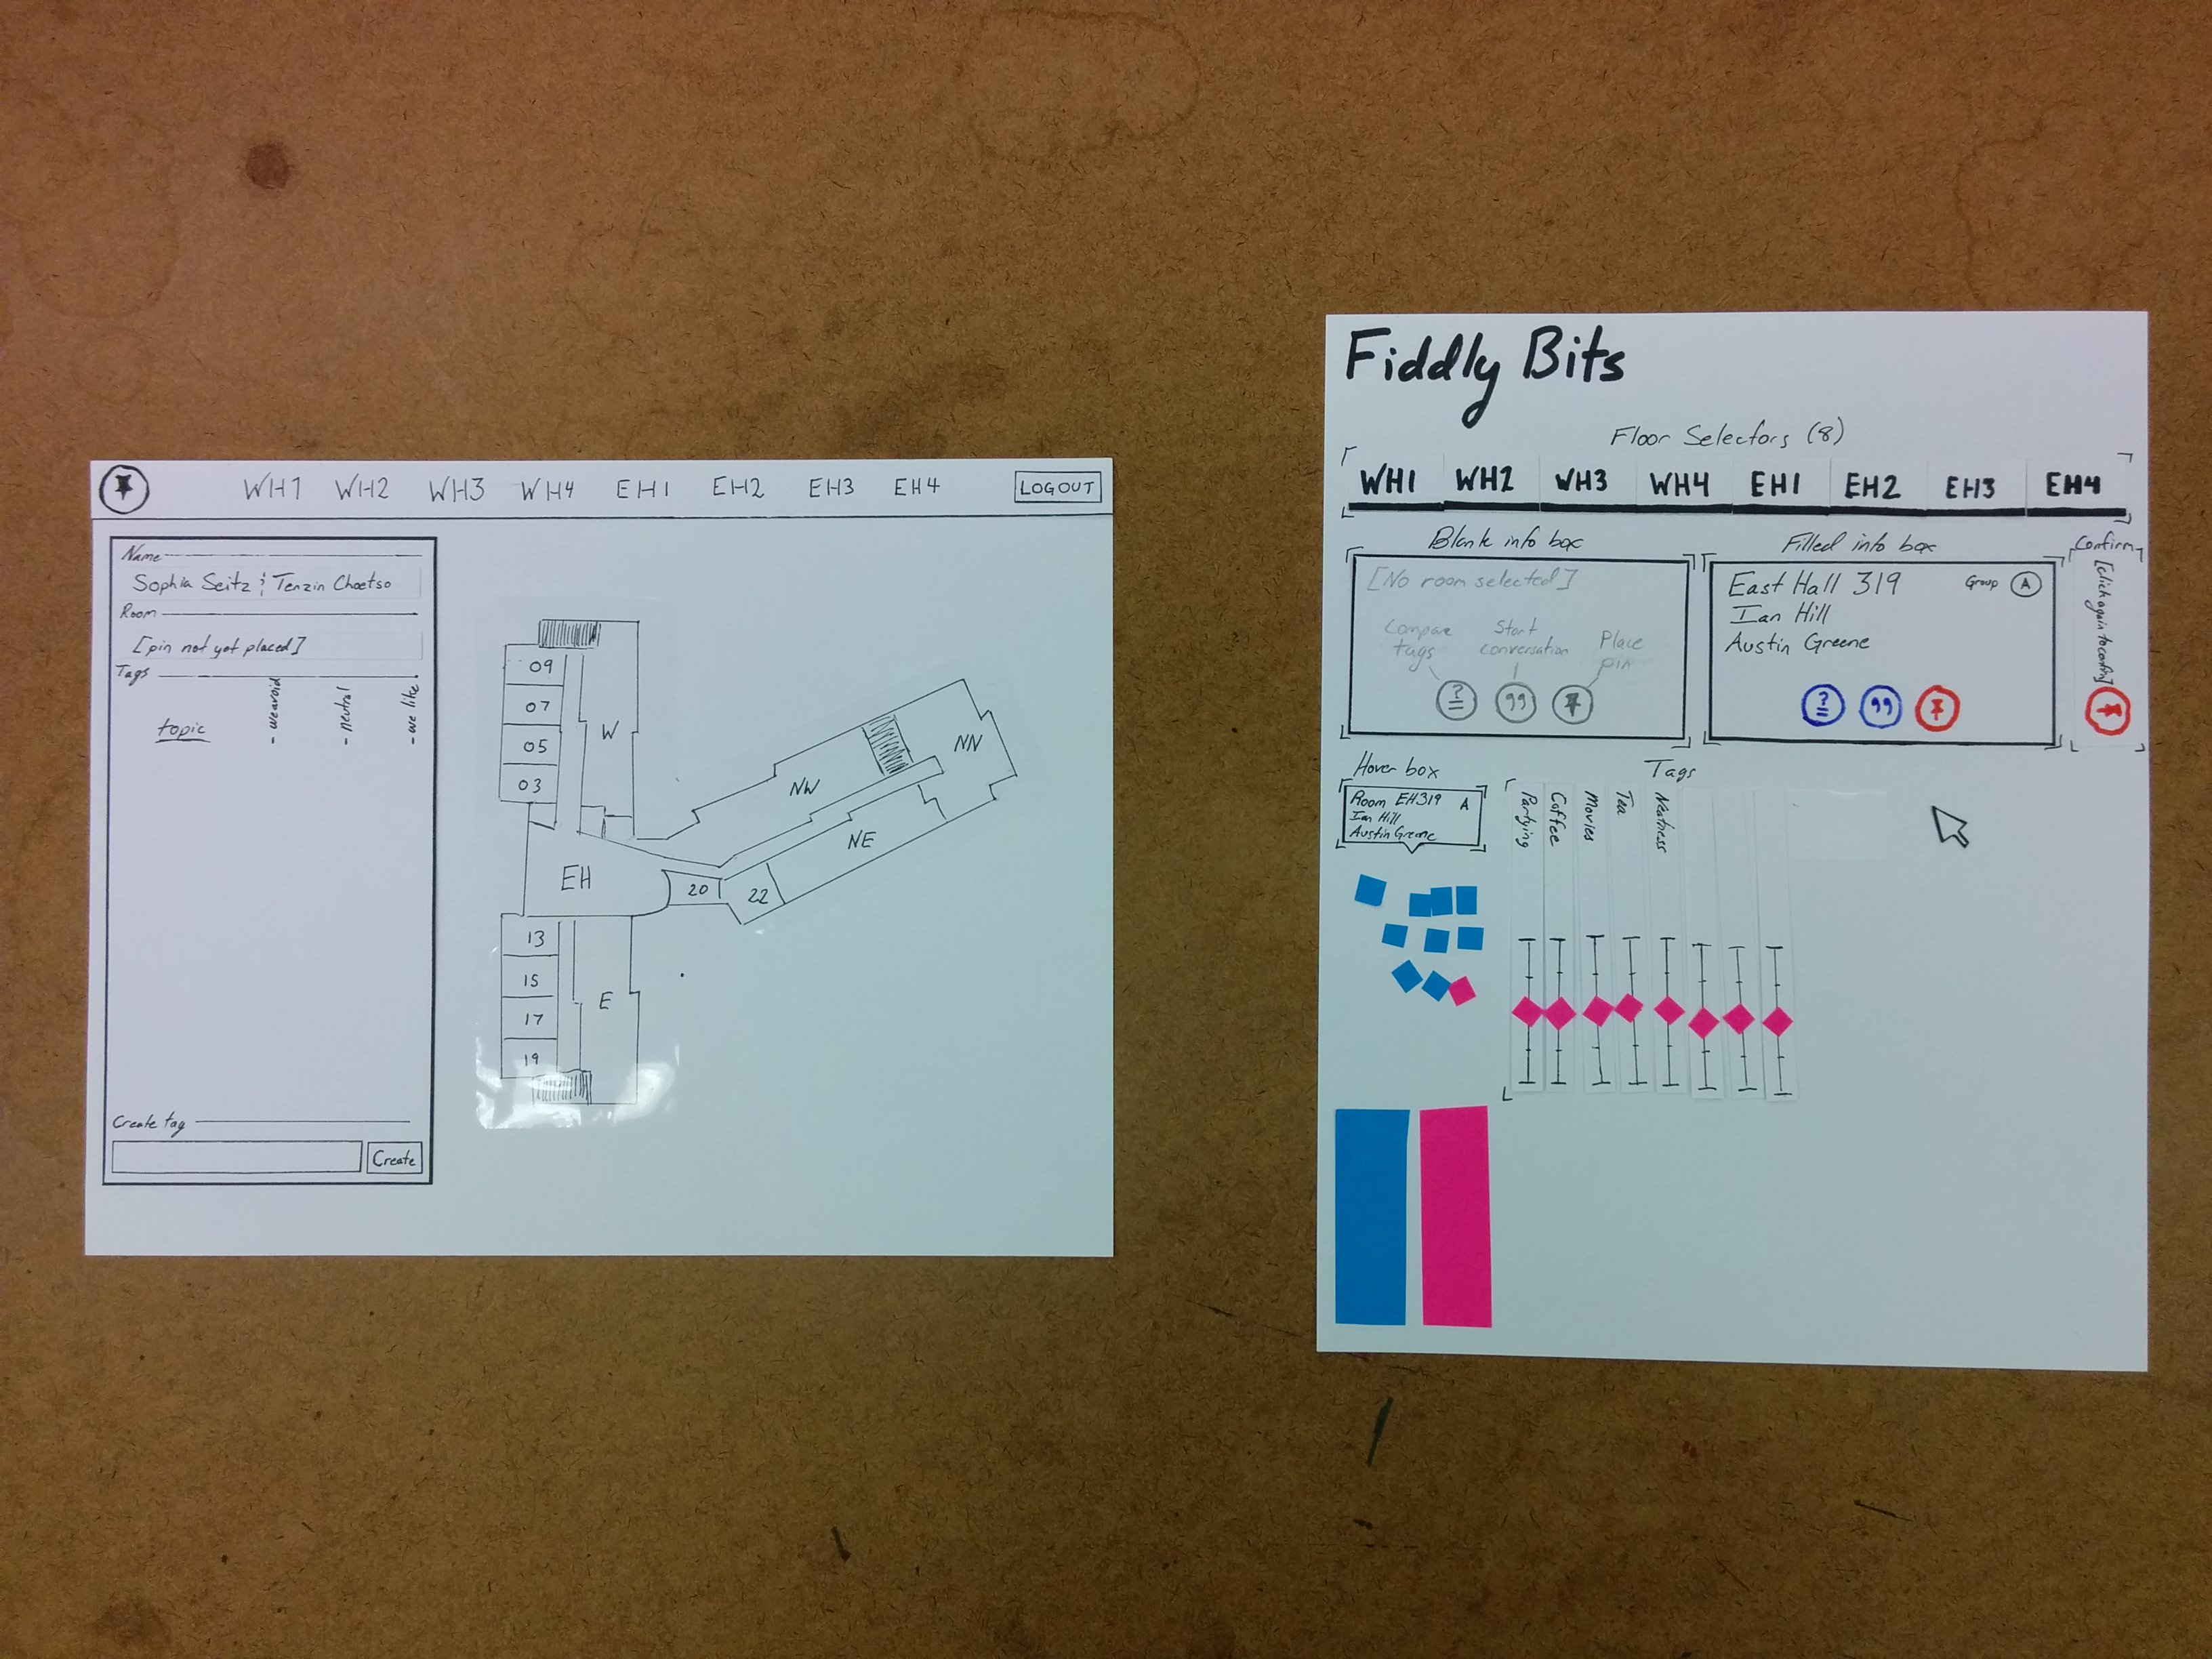 WH1 WH2 WH3 WH4 EH1 EH2 EH3 EH4 LOGOUT
Name
Sophia Seitz ; Tenzin Choetso
Room
[pin not yet placed]
Tags
topic
- we avoid
- neutral
- we like
Create tag
Create
09
07
05
03
W
NW
NN
NE
EH
20
22
13
15
17
19
E
Fiddly Bits
Floor Selectors (8)
WH1 WH2 WH3 WH4 EH1 EH2 EH3 EH4
Blank info box
[No room selected]
Compare
tags
Start
conversation
Place
pin
?
99
Filled info box
East Hall 319 Group A
Ian Hill
Austin Greene
?
99
Confirm
[click again to confirm]
Hover box
Room EH319 A
Ian Hill
Austin Greene
Tags
Partying
Coffee
Movies
Tea
Neatness